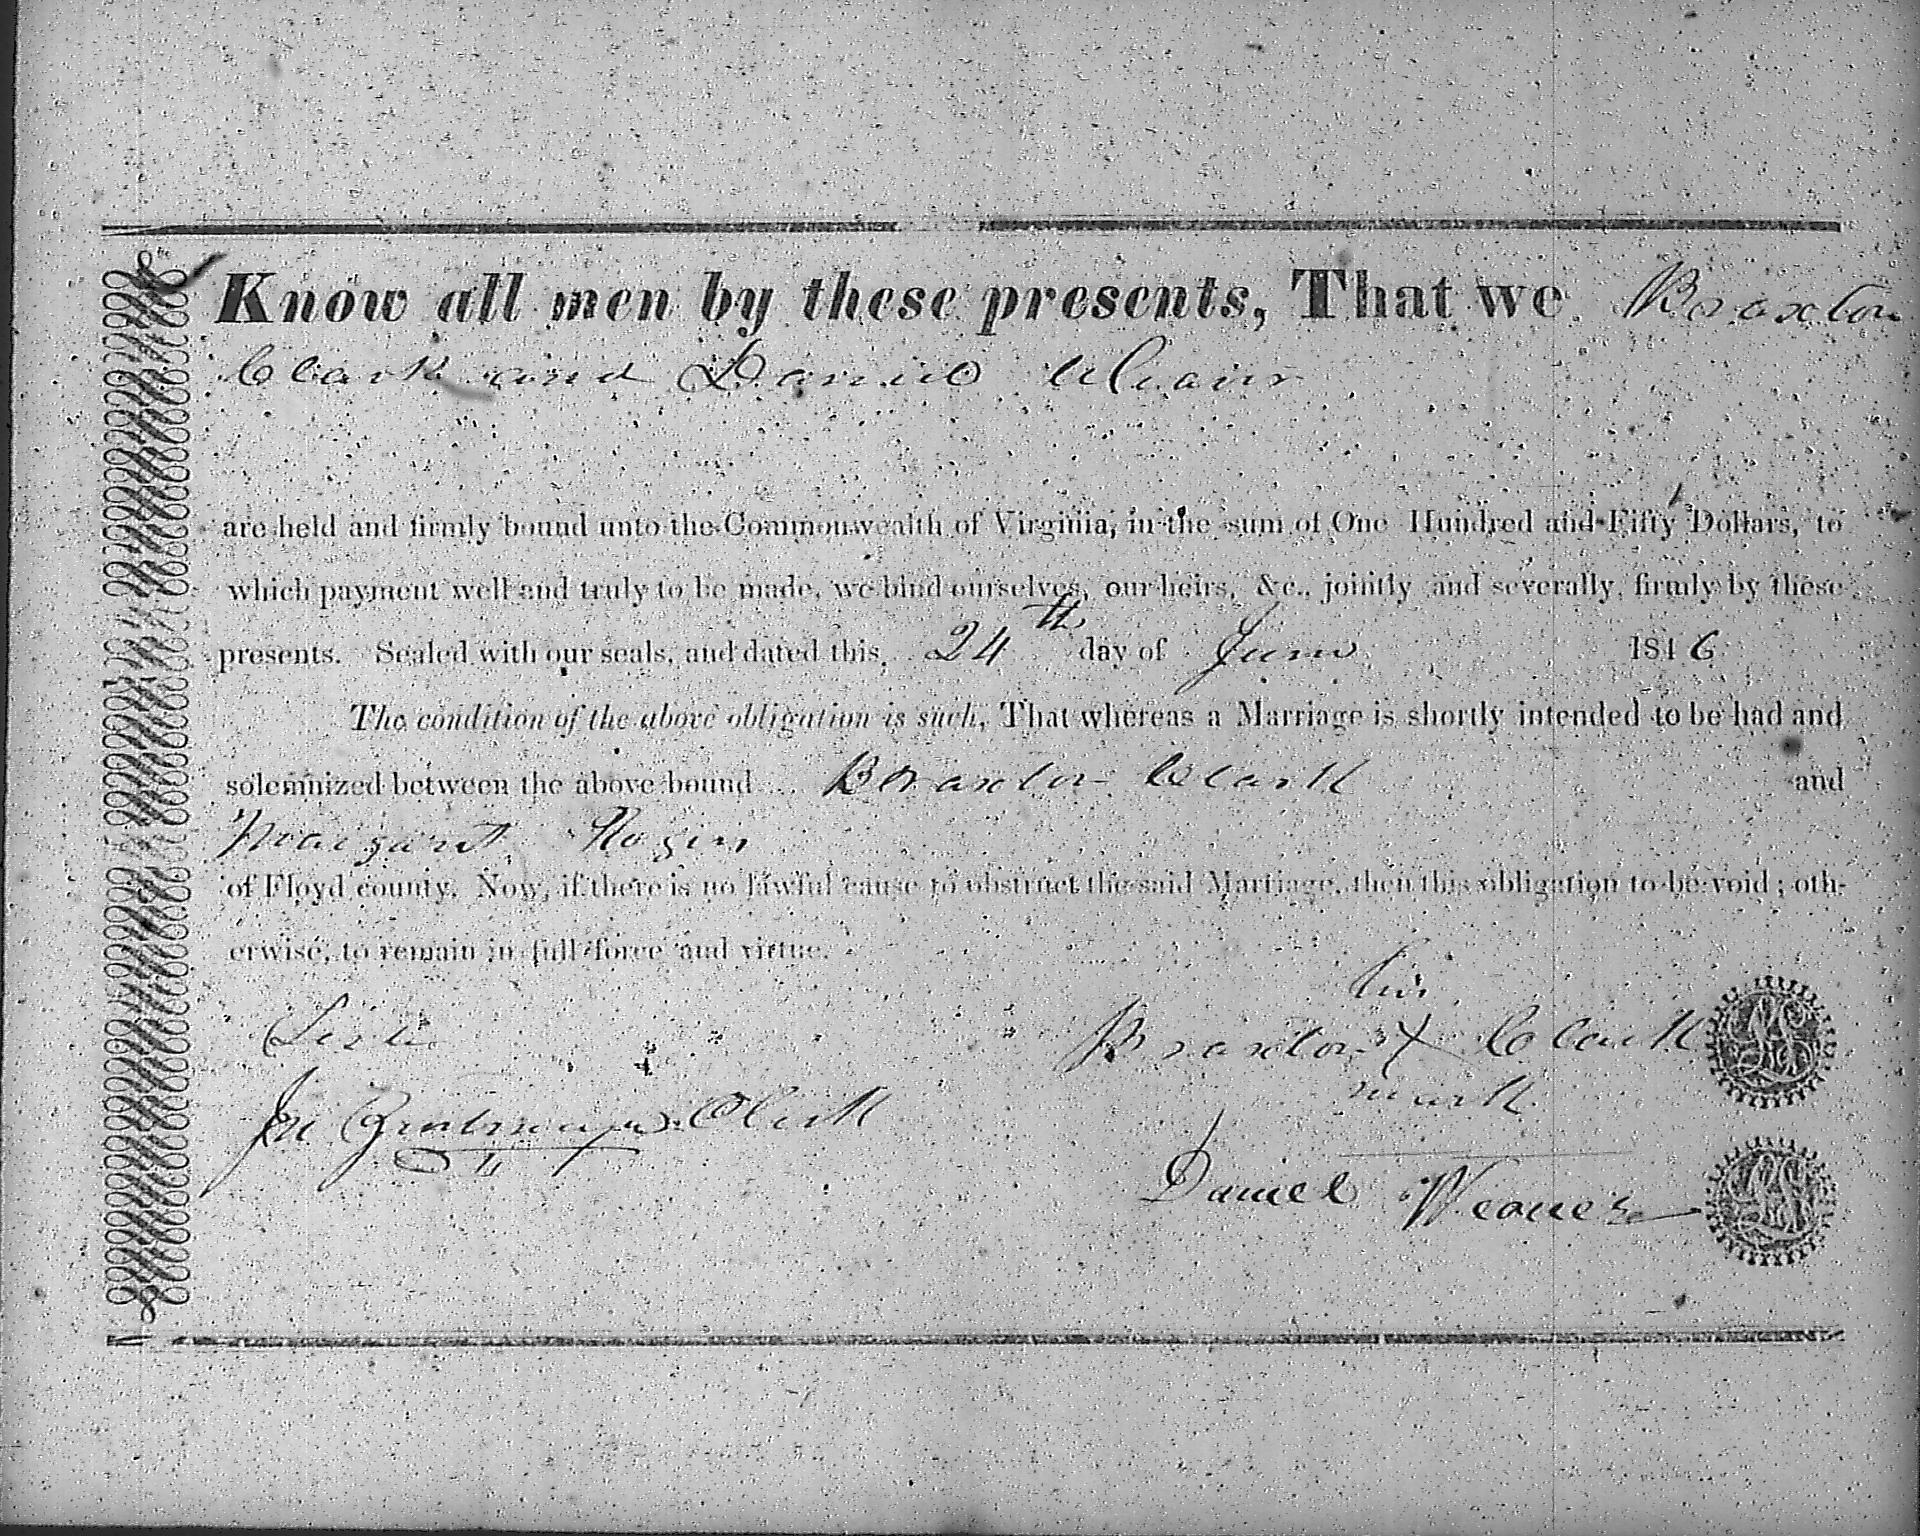 Know all men by these presents, That we Braxton
Clark and Daniel
are held and firmly bound unto the Commonwealth of Virginia, in the sum of One Hundred and Fifty Dollars, to
which payment well and truly to be made, we bind ourselves, our heirs, &c., jointly and severally, firmly by these
presents. Sealed with our seals, and dated this 24th day of June 1846
The condition of the above obligation is such, That whereas a Marriage is shortly intended to be had and
solemnized between the above bound Braxton Clark and
Margaret
of Floyd county. Now, if there is no lawful cause to obstruct the said Marriage, then this obligation to be void; oth-
erwise, to remain in full force and virtue.
his
Teste
Braxton X Clark
mark
Clerk
Daniel Weaver